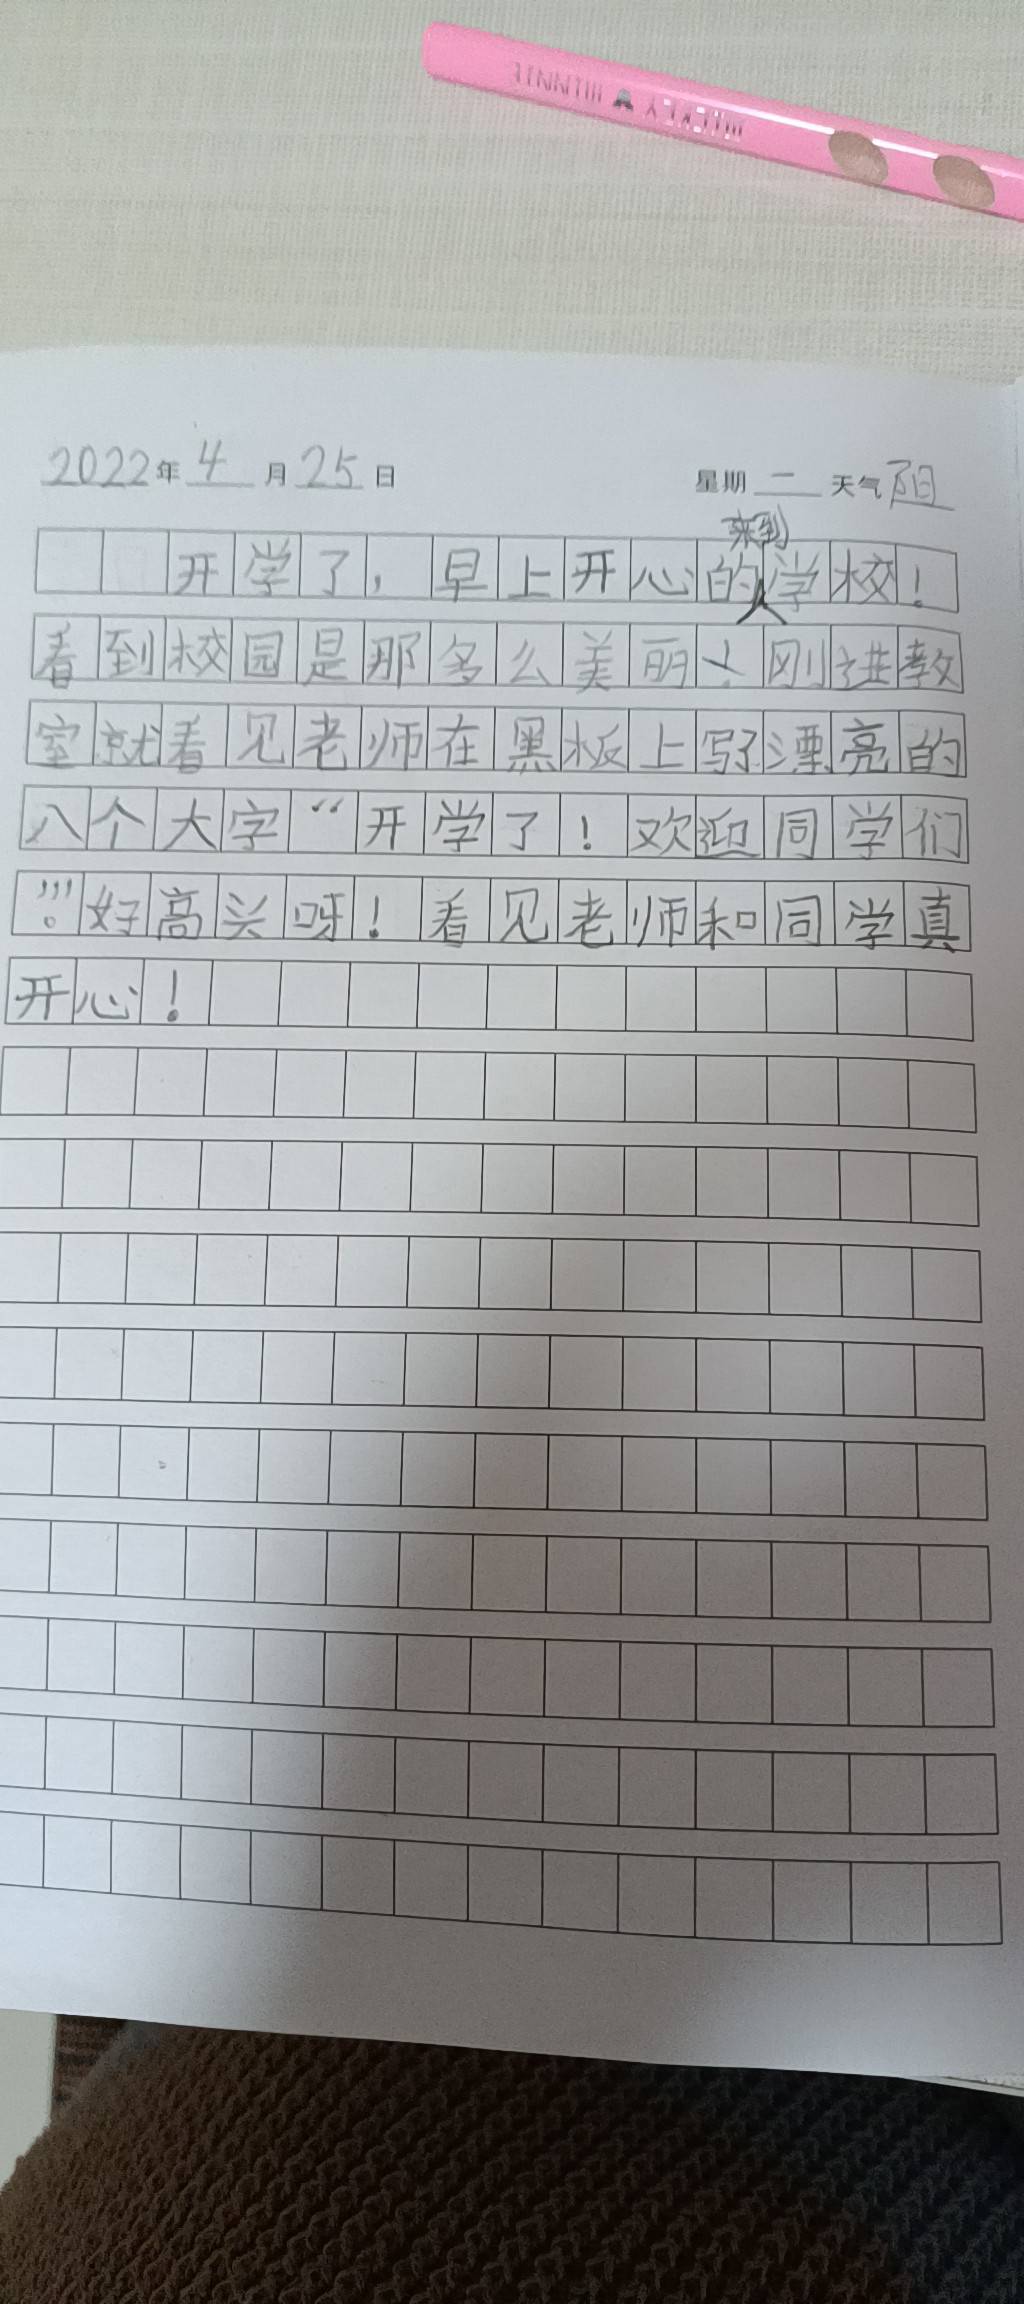 MICKEY MINNIE
2022年 4 月 25 日 星期 二 天气 阳
开学了，早上开心的来到学校！
看到校园是那多么美丽！刚进教
室就看见老师在黑板上写了漂亮的
八个大字“开学了！欢迎同学们
!”。好高兴呀！看见老师和同学真
开心！